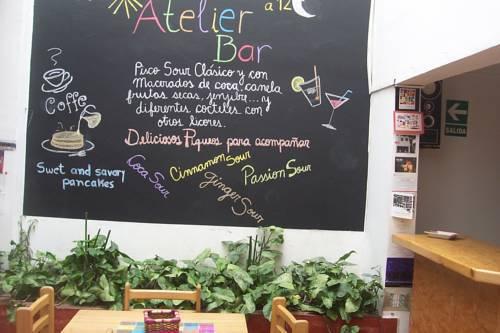 a 12
Atelier
Bar
Pisco Sour Clásico y con
Macerados de coca, canela
frutas secas, jengibre... y
diferentes cocteles con
otros licores.
Deliciosos Piqueos para acompañar
Coffee
Swet and savory
pancakes
Coca Sour
Cinnamon Sour
Ginger Sour
Passion Sour
SALIDA